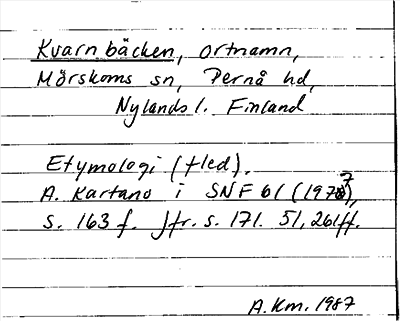 Kvarnbäcken, ortnamn,
Mörskoms sn, Pernå hd,
Nylands l. Finland
Etymologi (fled).
A. Kartano i SNF 61 (1977),
s. 163 f. Jfr. s. 171. 51, 261ff.
A.Km. 1987